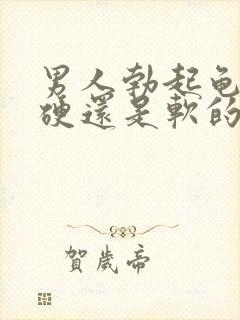 男人勃起龜
硬還是軟的
賀歲帝